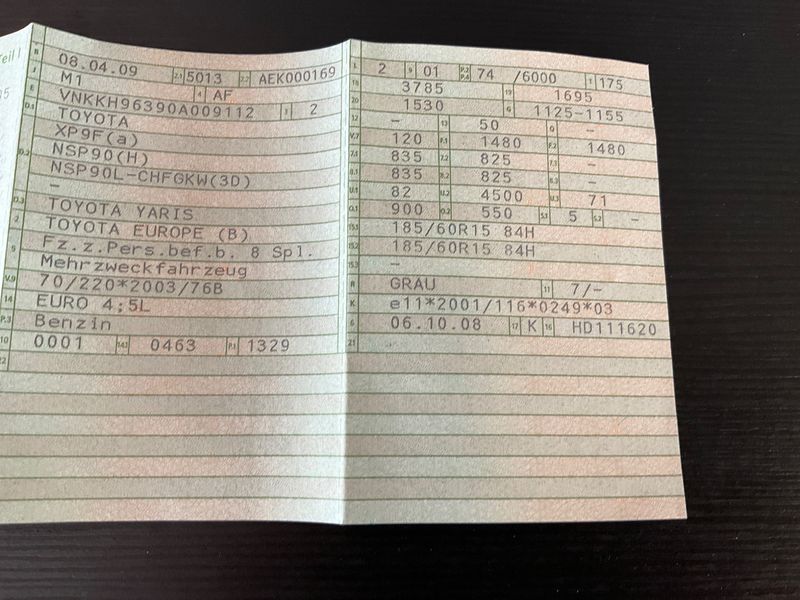 Teil I
B 08.04.09 2.1 5013 2.2 AEK000169
J M1 4 AF
E VNKKH96390A009112 3 2
D.1 TOYOTA
XP9F(a)
D.2 NSP90(H)
NSP90L-CHFGKW(3D)
–
D.3 TOYOTA YARIS
2 TOYOTA EUROPE (B)
5 Fz.z.Pers.bef.b. 8 Spl.
Mehrzweckfahrzeug
V.9 70/220*2003/76B
14 EURO 4;5L
P.3 Benzin
10 0001 14.1 0463 P.1 1329
22
L 2 9 01 P.2 P.4 74 /6000 T 175
18 3785 19 1695
20 1530 G 1125-1155
12 – 13 50 Q –
V.7 120 F.1 1480 F.2 1480
7.1 835 7.2 825 7.3 –
8.1 835 8.2 825 8.3 –
U.1 82 U.2 4500 U.3 71
O.1 900 O.2 550 S.1 5 S.2 –
15.1 185/60R15 84H
15.2 185/60R15 84H
15.3 –
R GRAU 11 7/–
K e11*2001/116*0249*03
6 06.10.08 17 K 16 HD111620
21